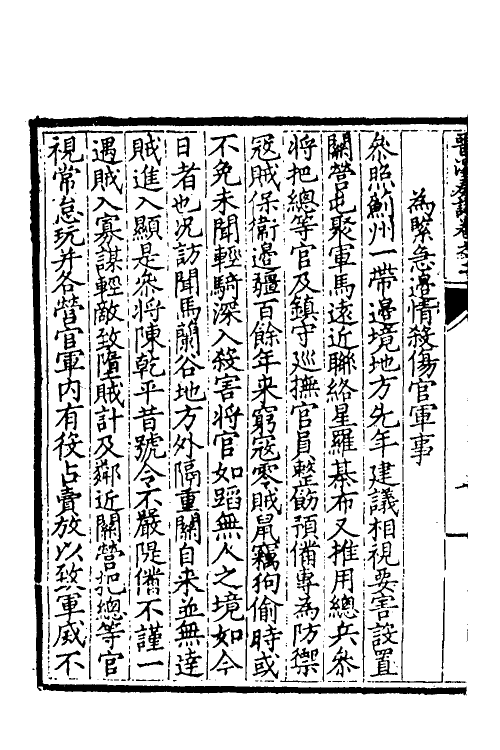 為緊急邊情殺傷官軍事
參照薊州一帶邊境地方先年建議相視要害設置
關營屯聚軍馬遠近聯絡星羅棊布又推用總兵參
將把總等官及鎮守巡撫官員整飭預備專為防禦
冦賊保衛邊疆百餘年来窮冦零賊鼠竊狗偷時或
不免未聞輕騎深入殺害將官如蹈無人之境如今
日者也况訪聞馬蘭谷地方外隔重關自来並無達
賊進入顯是叅將陳乾平昔號令不嚴隄備不謹一
遇賊入寡謀輕敵致墮賊計及鄰近關營把總等官
視常怠玩并各營官軍内有役占賣放以致軍威不